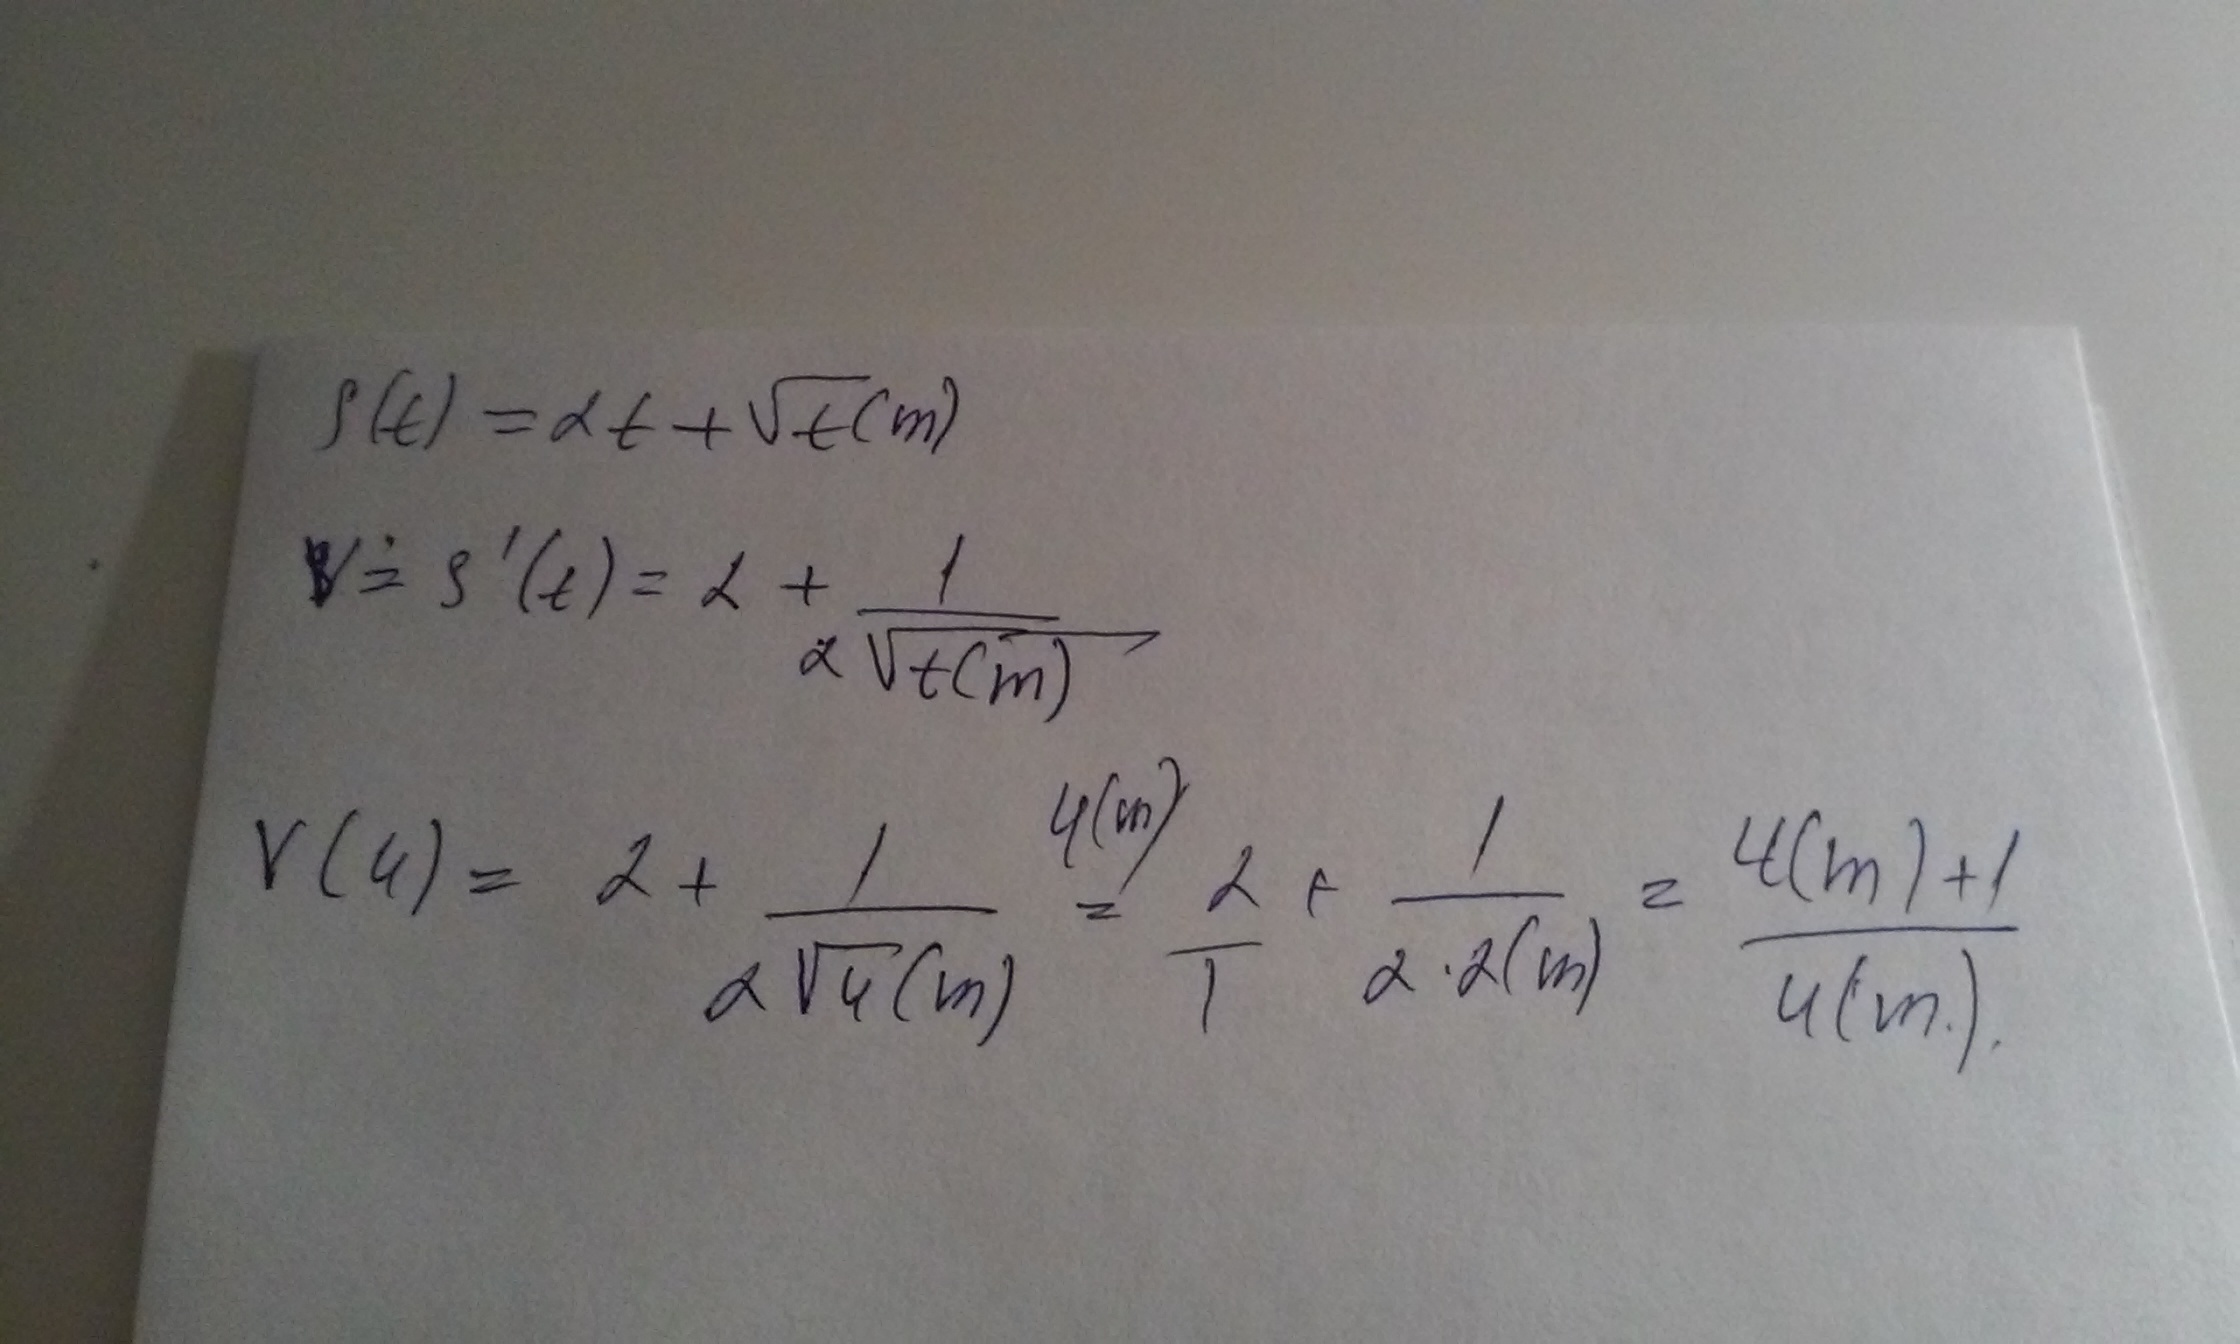 S(t) = 2t + √t(m)
V = S'(t) = 2 + 1/(2√t(m))
V(4) = 2 + 1/(2√4(m)) = 4(m)/ 2/1 + 1/(2·2(m)) = (4(m)+1)/(4(m.)).